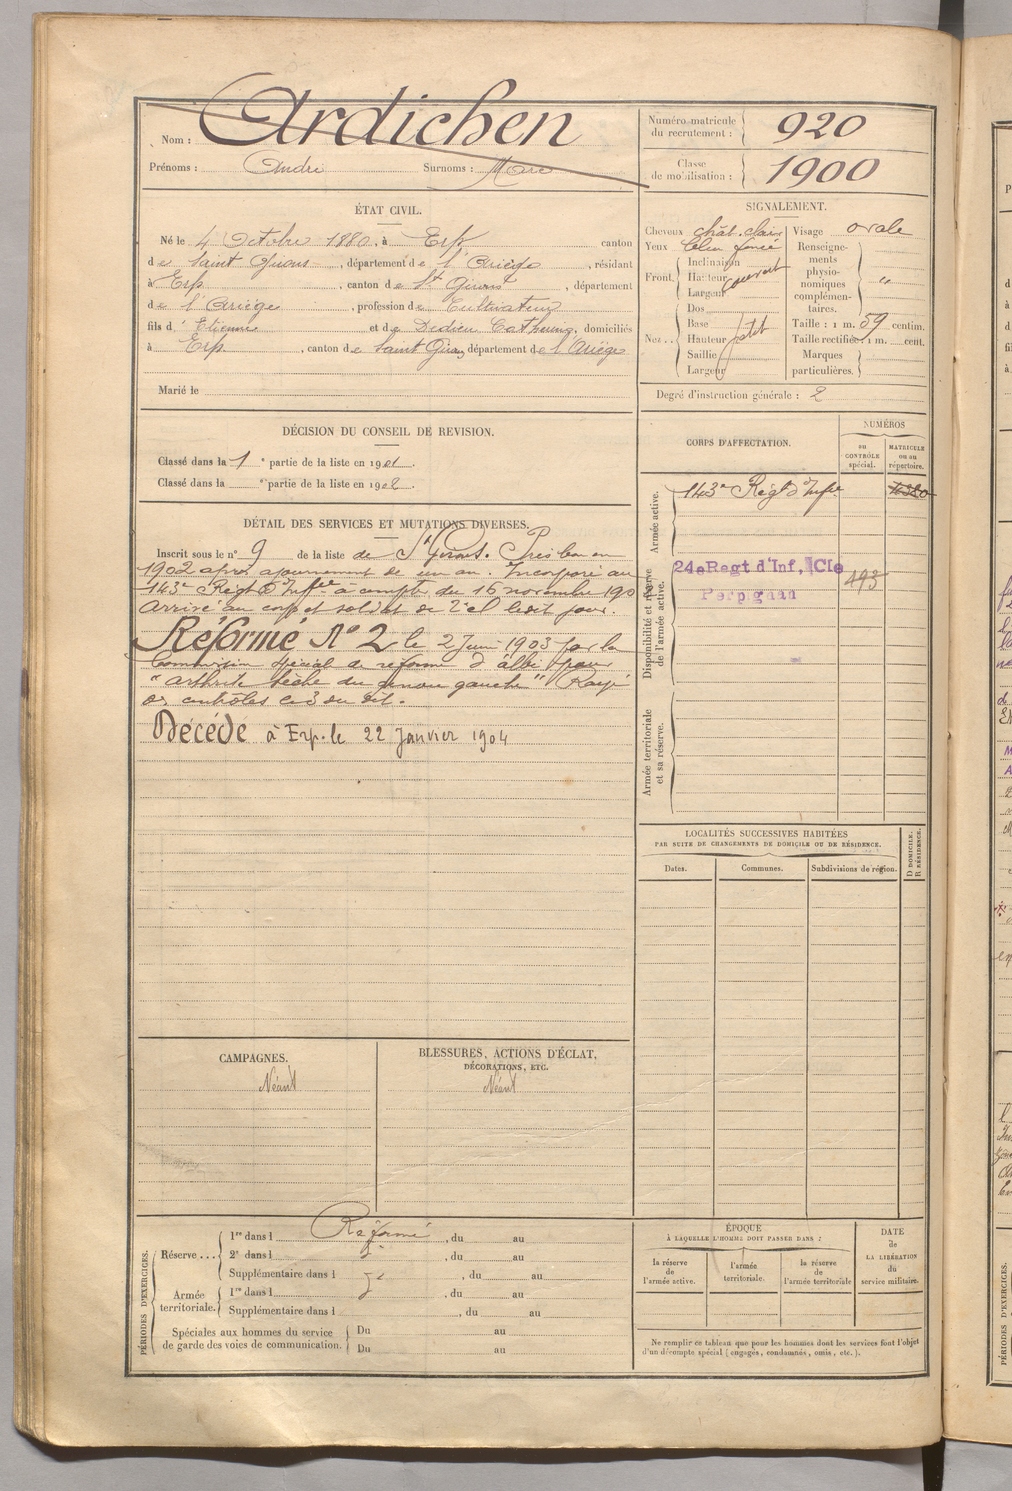 Nom : Ardichen
Prénoms : André Surnoms : Marc
Numéro matricule du recrutement : 920
Classe de mobilisation : 1900
ÉTAT CIVIL.
Né le 4 Octobre 1880, à Erp canton
de Saint Girons, département de l'Ariège, résidant
à Erp, canton de St Girons, département
de l'Ariège, profession de Cultivateur
fils d'Etienne et de Dedieu Catherine, domiciliés
à Erp, canton de Saint Girons département de l'Ariège
Marié le
SIGNALEMENT.
Cheveux chât. clair
Yeux bleu foncé
Front. Inclinaison
Hauteur couvert
Largeur
Nez .. Dos
Base
Hauteur petit
Saillie
Largeur
Visage ovale
Renseignements physionomiques complémentaires. "
Taille : 1 m. 59 centim.
Taille rectifiée. 1 m. cent.
Marques particulières.
Degré d'instruction générale : 2
DÉCISION DU CONSEIL DE REVISION.
Classé dans la 1 e partie de la liste en 1901.
Classé dans la e partie de la liste en 1902.
DÉTAIL DES SERVICES ET MUTATIONS DIVERSES.
Inscrit sous le n° 9 de la liste de St Girons. Pris bon en
1902 après ajournement de un an. Incorporé au
143e Régt d'Inftie à compter du 16 novembre 190
Arrivé au corps et soldat de 2e cl ledit jour.
Réformé N° 2 le 2 Juin 1903 par la
Commission spécial de réforme d'Albi pour
"arthrite sèche du genou gauche" Rayé
des contrôles le 3 du dit.
Décédé à Erp. le 22 Janvier 1904
CORPS D'AFFECTATION.
NUMÉROS
au CONTRÔLE spécial.
MATRICULE ou au répertoire.
Armée active.
143e Régt d'Infie
Disponibilité et réserve de l'armée active.
24e Regt d'Inf, Cie
Perpignan
493
Armée territoriale et sa réserve.
LOCALITÉS SUCCESSIVES HABITÉES
PAR SUITE DE CHANGEMENTS DE DOMICILE OU DE RÉSIDENCE.
Dates. Communes. Subdivisions de région.
D DOMICILE. R RÉSIDENCE.
CAMPAGNES.
Néant
BLESSURES, ACTIONS D'ÉCLAT,
DÉCORATIONS, ETC.
Néant
PÉRIODES D'EXERCICES.
Réserve ... 1re dans l Réformé, du au
2e dans l, du au
Supplémentaire dans l, du au
Armée territoriale. 1re dans l, du au
Supplémentaire dans l, du au
Spéciales aux hommes du service de garde des voies de communication. Du au
Du au
ÉPOQUE
À LAQUELLE L'HOMME DOIT PASSER DANS :
la réserve de l'armée active.
l'armée territoriale.
la réserve de l'armée territoriale
DATE de LA LIBÉRATION du service militaire.
Ne remplir ce tableau que pour les hommes dont les services font l'objet
d'un décompte spécial (engagés, condamnés, omis, etc.).